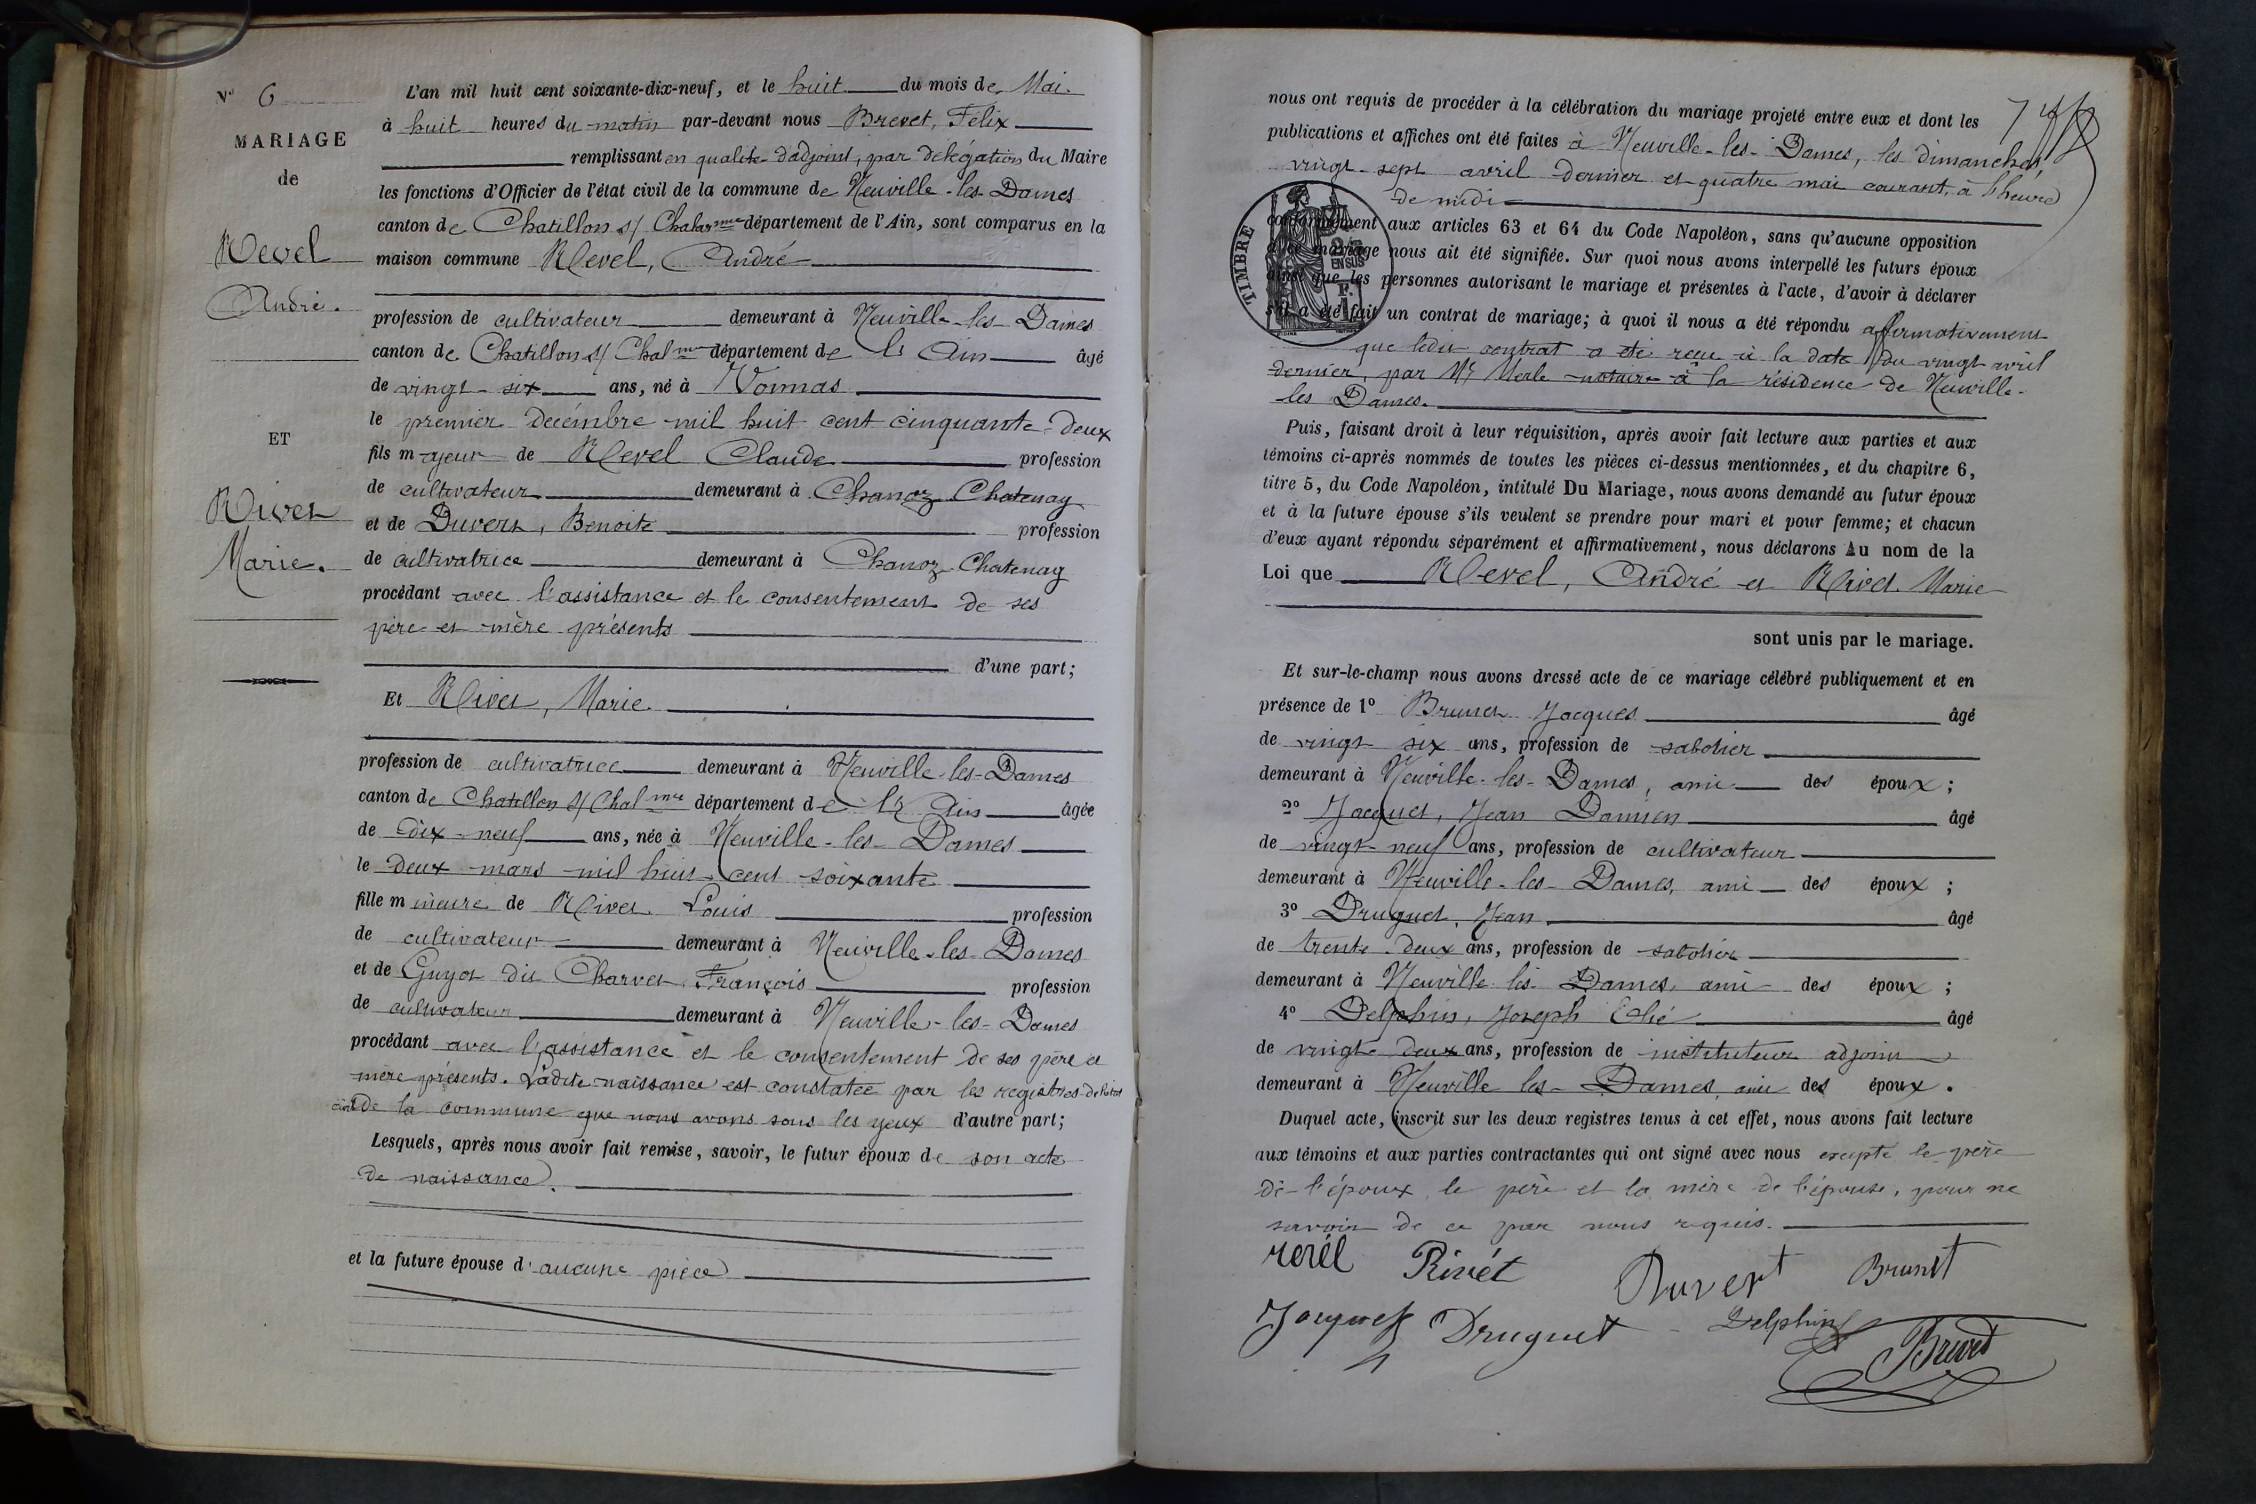 N° 6
MARIAGE
de
Revel
André.
ET
Rivet
Marie.
L'an mil huit cent soixante-dix-neuf, et le huit du mois de Mai.
à huit heures du matin par-devant nous Brevet, Félix
remplissant en qualité d'adjoint, par délégation du Maire
les fonctions d'Officier de l'état civil de la commune de Neuville-les-Dames
canton de Chatillon s/ Chalarnne département de l'Ain, sont comparus en la
maison commune Revel, André
profession de cultivateur demeurant à Neuville-les-Dames
canton de Chatillon s/ Chalnne département de l'Ain âgé
de vingt-six ans, né à Vonnas
le premier décembre mil huit cent cinquante-deux
fils majeur de Revel Claude profession
de cultivateur demeurant à Chanoz-Chatenay
et de Duvert, Benoite profession
de cultivatrice demeurant à Chanoz-Chatenay
procédant avec l'assistance et le consentement de ses
père et mère présents
d'une part;
Et Rivet, Marie.
profession de cultivatrice demeurant à Neuville-les-Dames
canton de Chatillon s/ Chalnne département de l'Ain âgée
de dix-neuf ans, née à Neuville-les-Dames
le deux mars mil huit cent soixante
fille mineure de Rivet Louis profession
de cultivateur demeurant à Neuville-les-Dames
et de Guyot dit Charvet, François profession
de cultivateur demeurant à Neuville-les-Dames
procédant avec l'assistance et le consentement de ses père et
mère présents. Ladite naissance est constatée par les registres de l'état
civil de la commune que nous avons sous les yeux d'autre part;
Lesquels, après nous avoir fait remise, savoir, le futur époux de son acte
de naissance.
et la future épouse d'aucune pièce
nous ont requis de procéder à la célébration du mariage projeté entre eux et dont les
publications et affiches ont été faites à Neuville-les-Dames, les dimanches
vingt-sept avril dernier et quatre mai courant, à l'heure
de midi
conformément aux articles 63 et 64 du Code Napoléon, sans qu'aucune opposition
à ce mariage nous ait été signifiée. Sur quoi nous avons interpellé les futurs époux
ainsi que les personnes autorisant le mariage et présentes à l'acte, d'avoir à déclarer
s'il a été fait un contrat de mariage; à quoi il nous a été répondu affirmativement
TIMBRE
EN SUS
que ledit contrat a été reçu à la date du vingt avril
dernier, par Me Merle notaire à la résidence de Neuville-
les Dames.
Puis, faisant droit à leur réquisition, après avoir fait lecture aux parties et aux
témoins ci-après nommés de toutes les pièces ci-dessus mentionnées, et du chapitre 6,
titre 5, du Code Napoléon, intitulé Du Mariage, nous avons demandé au futur époux
et à la future épouse s'ils veulent se prendre pour mari et pour femme; et chacun
d'eux ayant répondu séparément et affirmativement, nous déclarons Au nom de la
Loi que Revel, André et Rivet Marie
sont unis par le mariage.
Et sur-le-champ nous avons dressé acte de ce mariage célébré publiquement et en
présence de 1° Brunet Jacques âgé
de vingt six ans, profession de sabotier
demeurant à Neuville-les-Dames, ami des époux;
2° Jacquet, Jean Damien âgé
de vingt-neuf ans, profession de cultivateur
demeurant à Neuville-les-Dames, ami des époux;
3° Druguet, Jean âgé
de trente-deux ans, profession de sabotier
demeurant à Neuville les Dames, ami des époux;
4° Delphin, Joseph Elié âgé
de vingt-deux ans, profession de instituteur adjoint
demeurant à Neuville les-Dames, ami des époux.
Duquel acte, inscrit sur les deux registres tenus à cet effet, nous avons fait lecture
aux témoins et aux parties contractantes qui ont signé avec nous excepté le père
de l'époux, le père et la mère de l'épouse, pour ne
savoir de ce par nous requis.
revél Rivét Duvert Brunet
Jacquet Druguet Delphin
Brevet